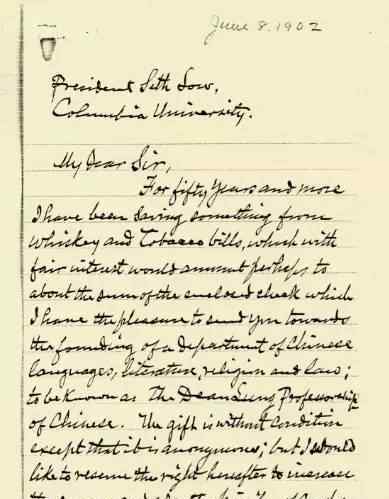 June 8. 1902
President Seth Low,
Columbia University.
My Dear Sir,
For fifty years and more
I have been saving something from
Whiskey and Tobacco bills, which with
fair interest would amount perhaps to
about the sum of the enclosed check which
I have the pleasure to send you towards
the founding of a department of Chinese
languages, literature, religion and law;
to be known as the Dean Lung Professorship
of Chinese. The gift is without condition
except that it is anonymous; but I should
like to reserve the right hereafter to increase